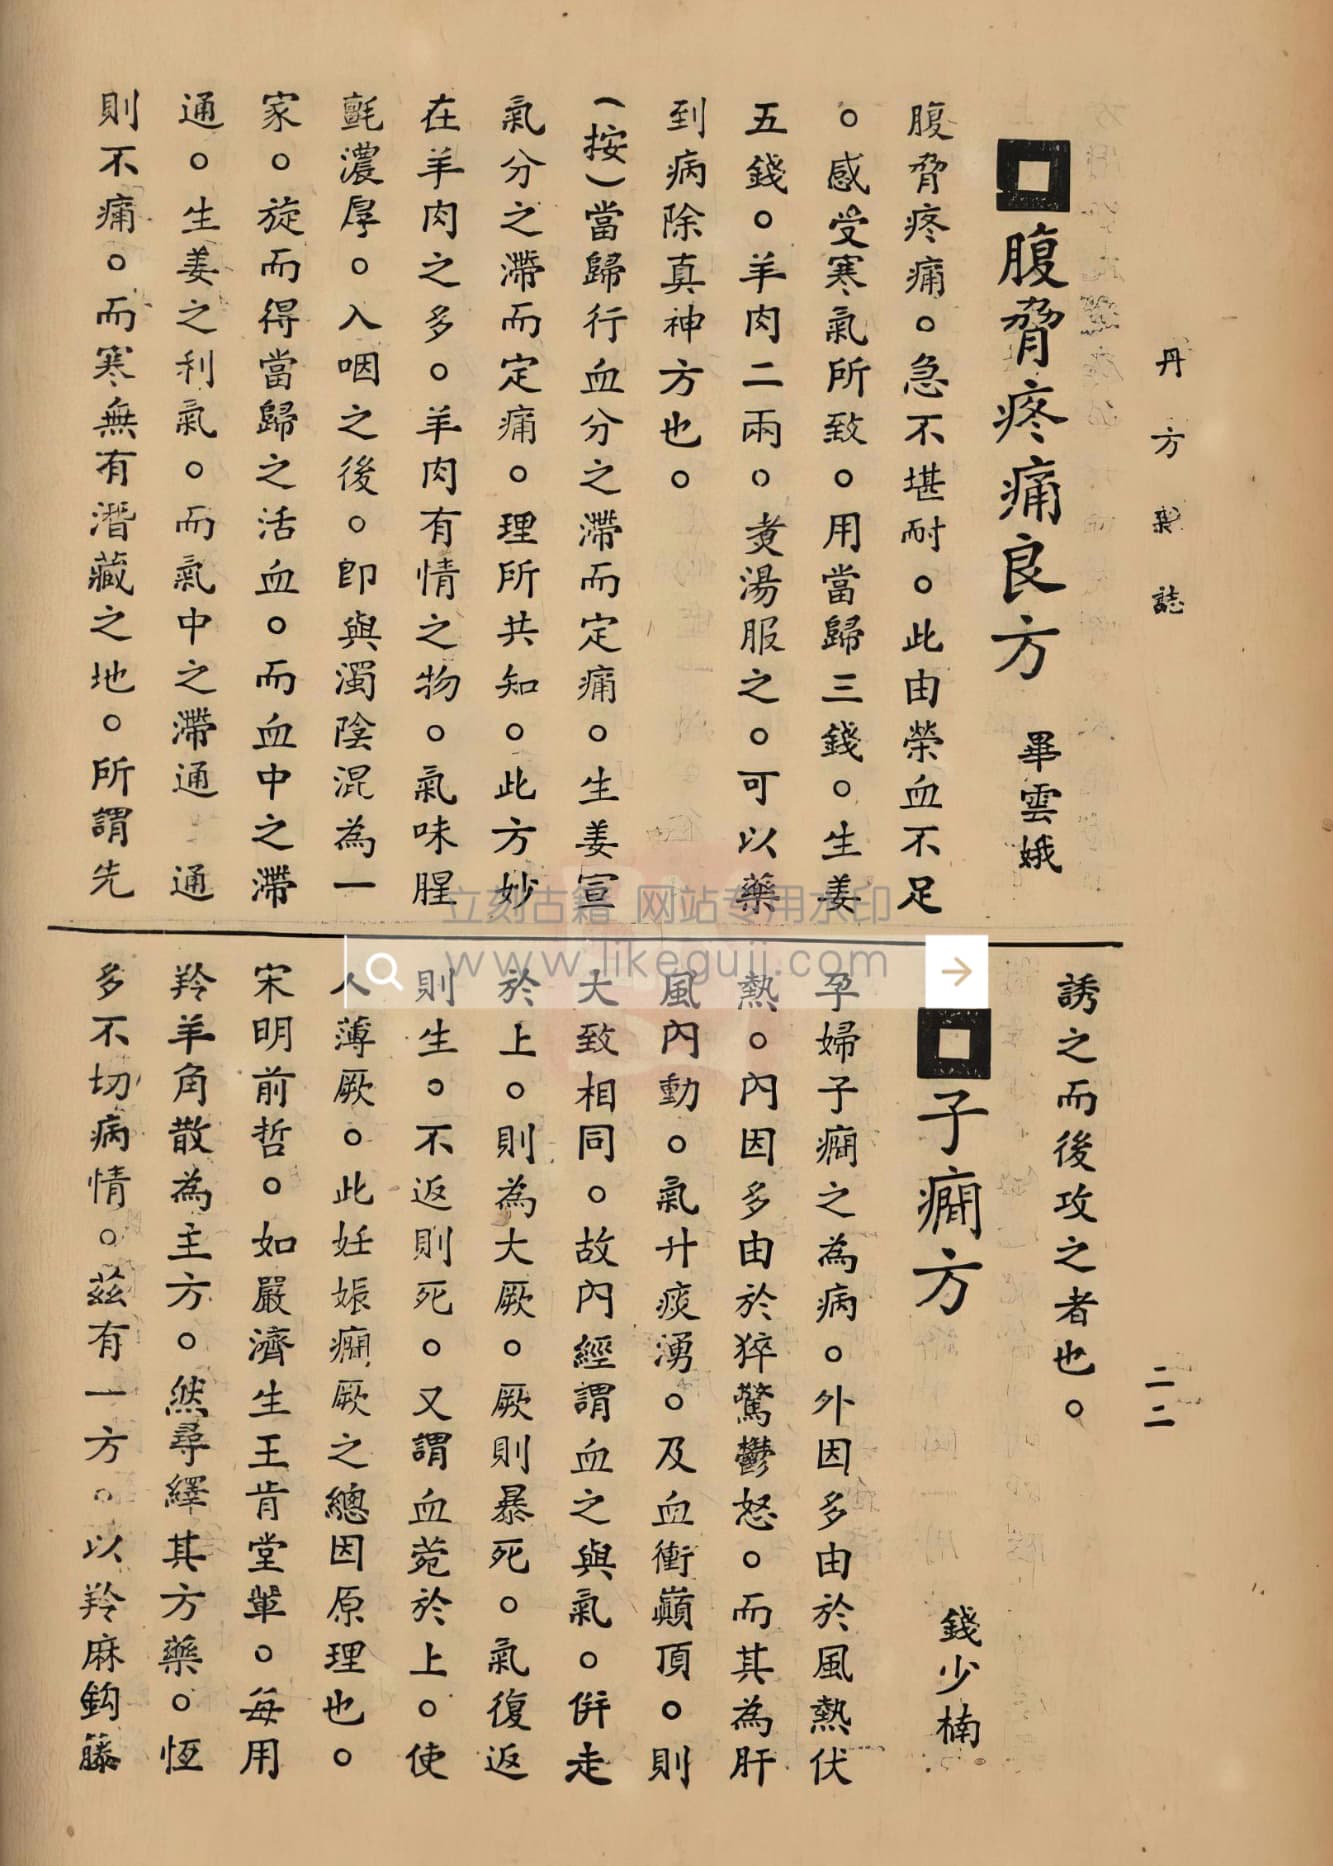 丹方雜誌
二二
腹脅疼痛良方 畢雲娥
腹脅疼痛。急不堪耐。此由榮血不足
。感受寒氣所致。用當歸三錢。生姜
五錢。羊肉二兩。煑湯服之。可以藥
到病除真神方也。
(按)當歸行血分之滯而定痛。生姜宣
氣分之滯而定痛。理所共知。此方妙
在羊肉之多。羊肉有情之物。氣味腥
氈濃厚。入咽之後。即與濁陰混為一
家。旋而得當歸之活血。而血中之滯
通。生姜之利氣。而氣中之滯通 通
則不痛。而寒無有潛藏之地。所謂先
誘之而後攻之者也。
子癇方 錢少楠
孕婦子癇之為病。外因多由於風熱伏
熱。內因多由於猝驚鬱怒。而其為肝
風內動。氣升痰湧。及血衝巔頂。則
大致相同。故內經謂血之與氣。併走
於上。則為大厥。厥則暴死。氣復返
則生。不返則死。又謂血菀於上。使
人薄厥。此妊娠癇厥之總因原理也。
宋明前哲。如嚴濟生王肯堂輩。每用
羚羊角散為主方。然尋繹其方藥。恆
多不切病情。茲有一方。以羚麻鈎藤
立刻古籍 网站专用水印
www.likeguji.com